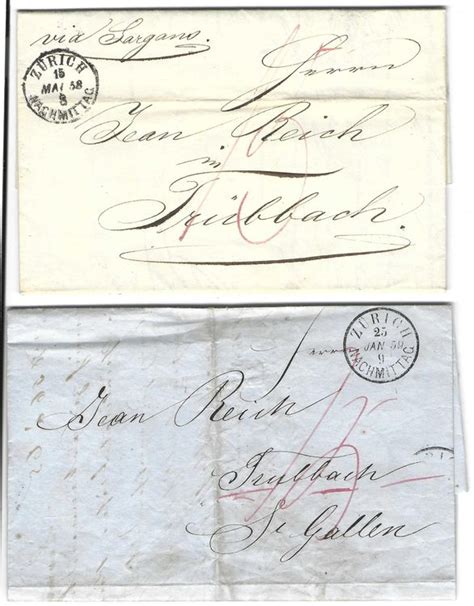 via Sargans.
ZÜRICH
15
MAI 58
NACHMITTAG
Herrn
Jean Reich
in
Trübbach
15
ZÜRICH
25
JAN 59
9
NACHMITTAG
Jean Reich
Trübbach
15
St Gallen